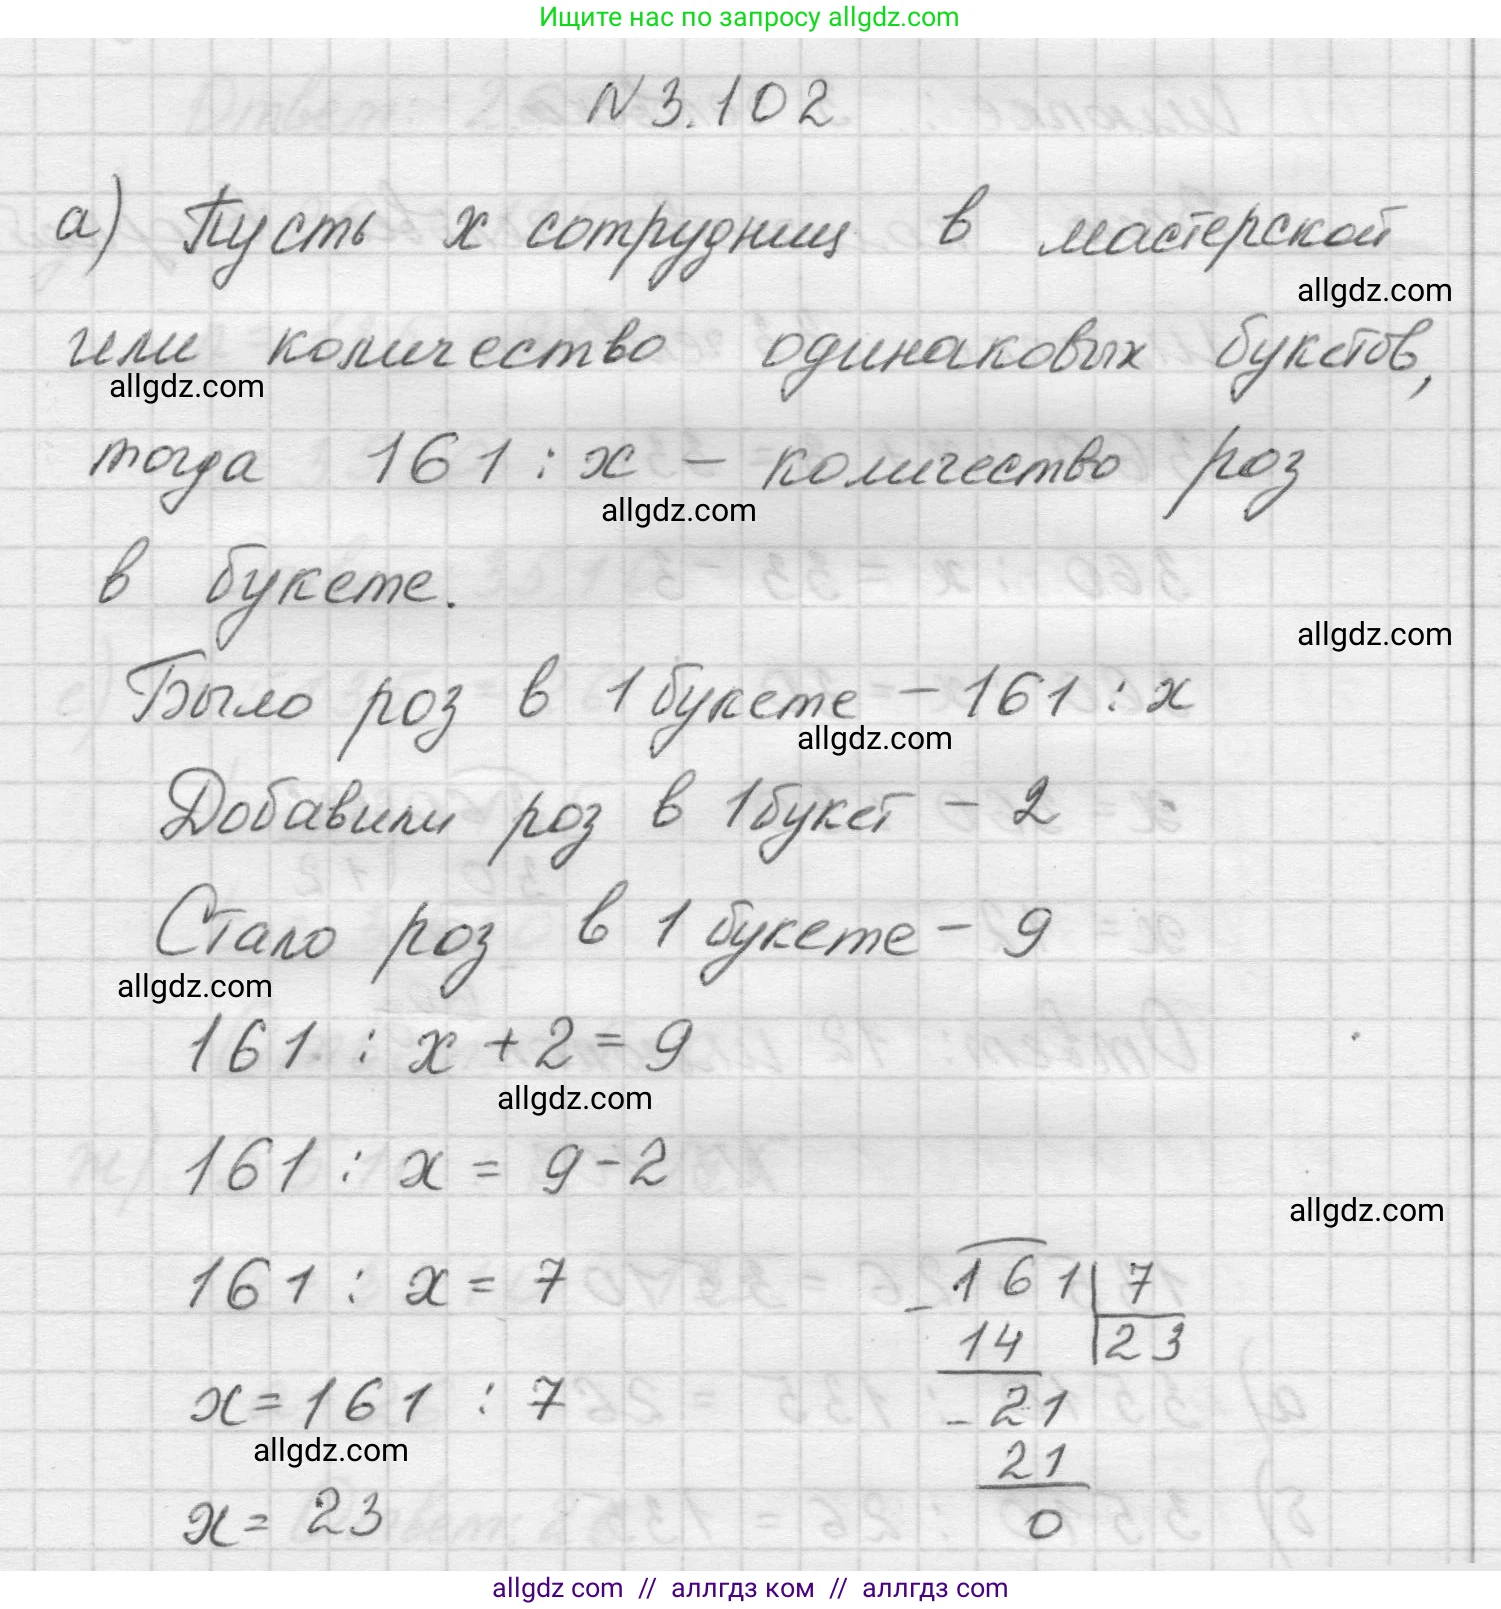 Ищите нас по запросу allgdz.com
N 3.102
а) Пусть x сотрудниц в мастерской
allgdz.com
или количество одинаковых букетов,
allgdz.com
тогда 161 : x – количество роз
allgdz.com
в букете.
allgdz.com
Было роз в 1 букете – 161 : x
allgdz.com
Добавили роз в 1 букет – 2
Стало роз в 1 букете – 9
allgdz.com
161 : x + 2 = 9
allgdz.com
161 : x = 9 - 2
allgdz.com
161 : x = 7
x = 161 : 7
allgdz.com
x = 23
- 161 | 7
14 | 23
- 21
21
0
allgdz com // аллгдз ком // аллгдз com